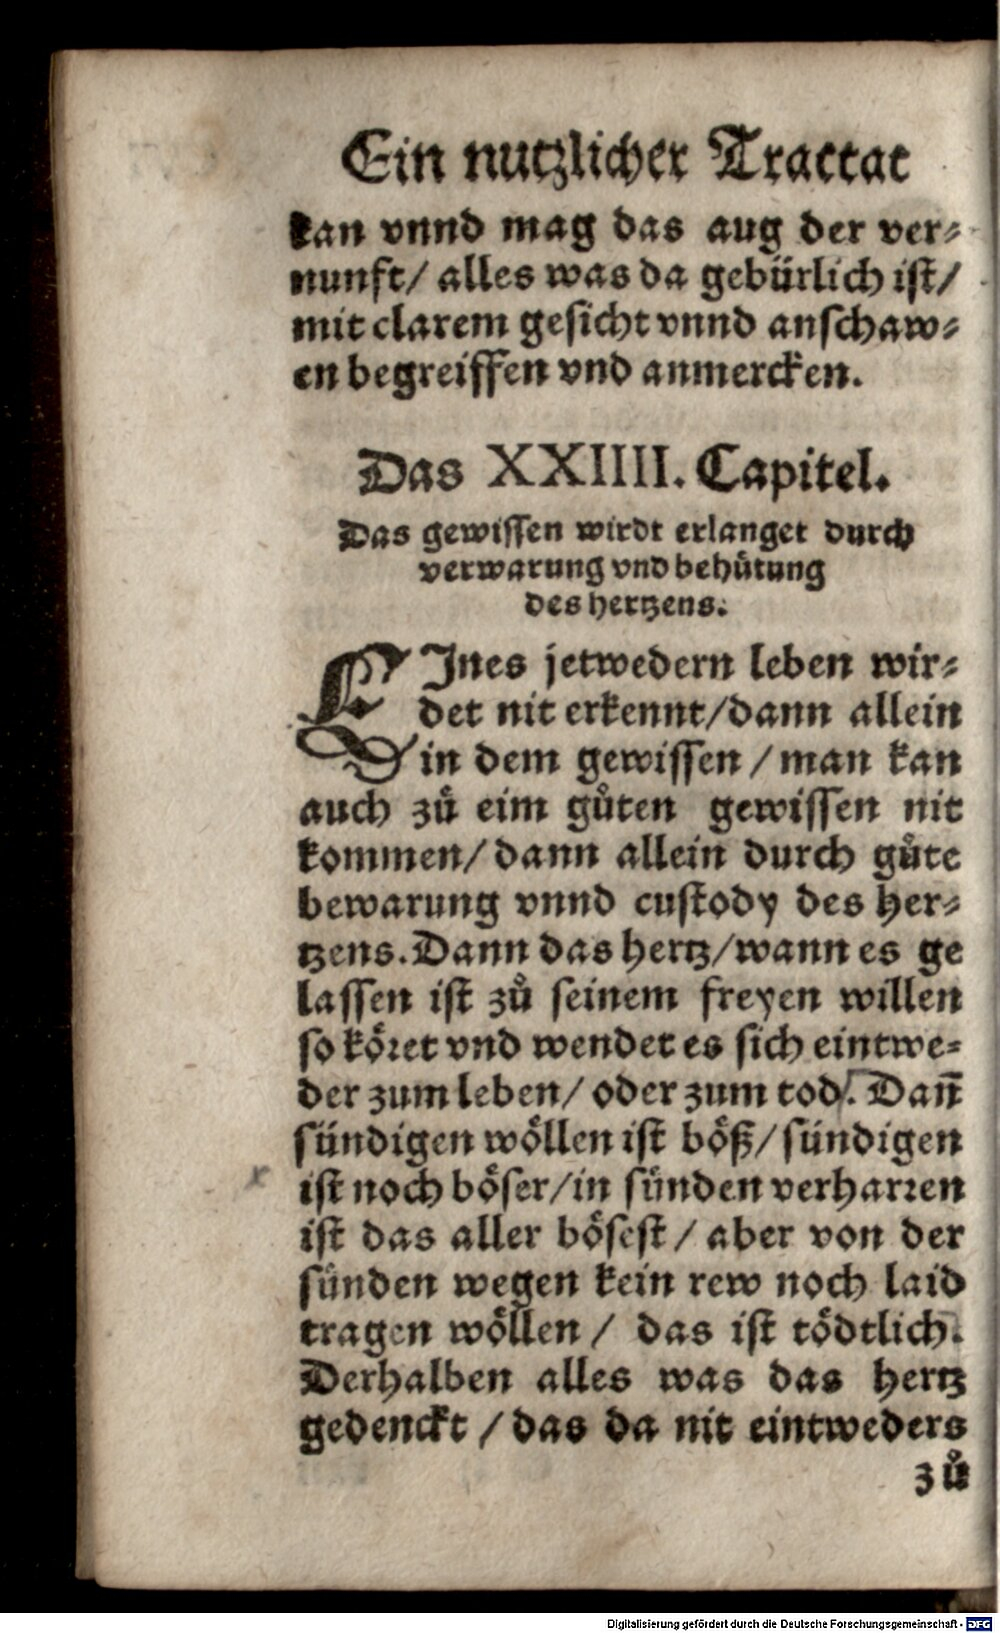 Ein nutzlicher Tractat
kan vnnd mag das aug der ver⸗
nunft/ alles was da gebürlich ist/
mit clarem gesicht vnnd anschaw⸗
en begreiffen vnd anmercken.
Das XXIIII. Capitel.
Das gewissen wirdt erlanget durch
verwarung vnd behütung
des hertzens.
EInes jetwedern leben wir⸗
det nit erkennt/dann allein
in dem gewissen / man kan
auch zů eim gůten gewissen nit
kommen/ dann allein durch gůte
bewarung vnnd custody des her⸗
tzens. Dann das hertz/wann es ge
lassen ist zů seinem freyen willen
so köret vnd wendet es sich eintwe⸗
der zum leben/ oder zum tod/. Dañ
sündigen wöllen ist böß/ sündigen
ist noch böser/in sünden verharren
ist das aller bösest / aber von der
sünden wegen kein rew noch laid
tragen wöllen / das ist tödtlich.
Derhalben alles was das hertz
gedenckt / das da nit eintweders
zů
Digitalisierung gefördert durch die Deutsche Forschungsgemeinschaft - DFG